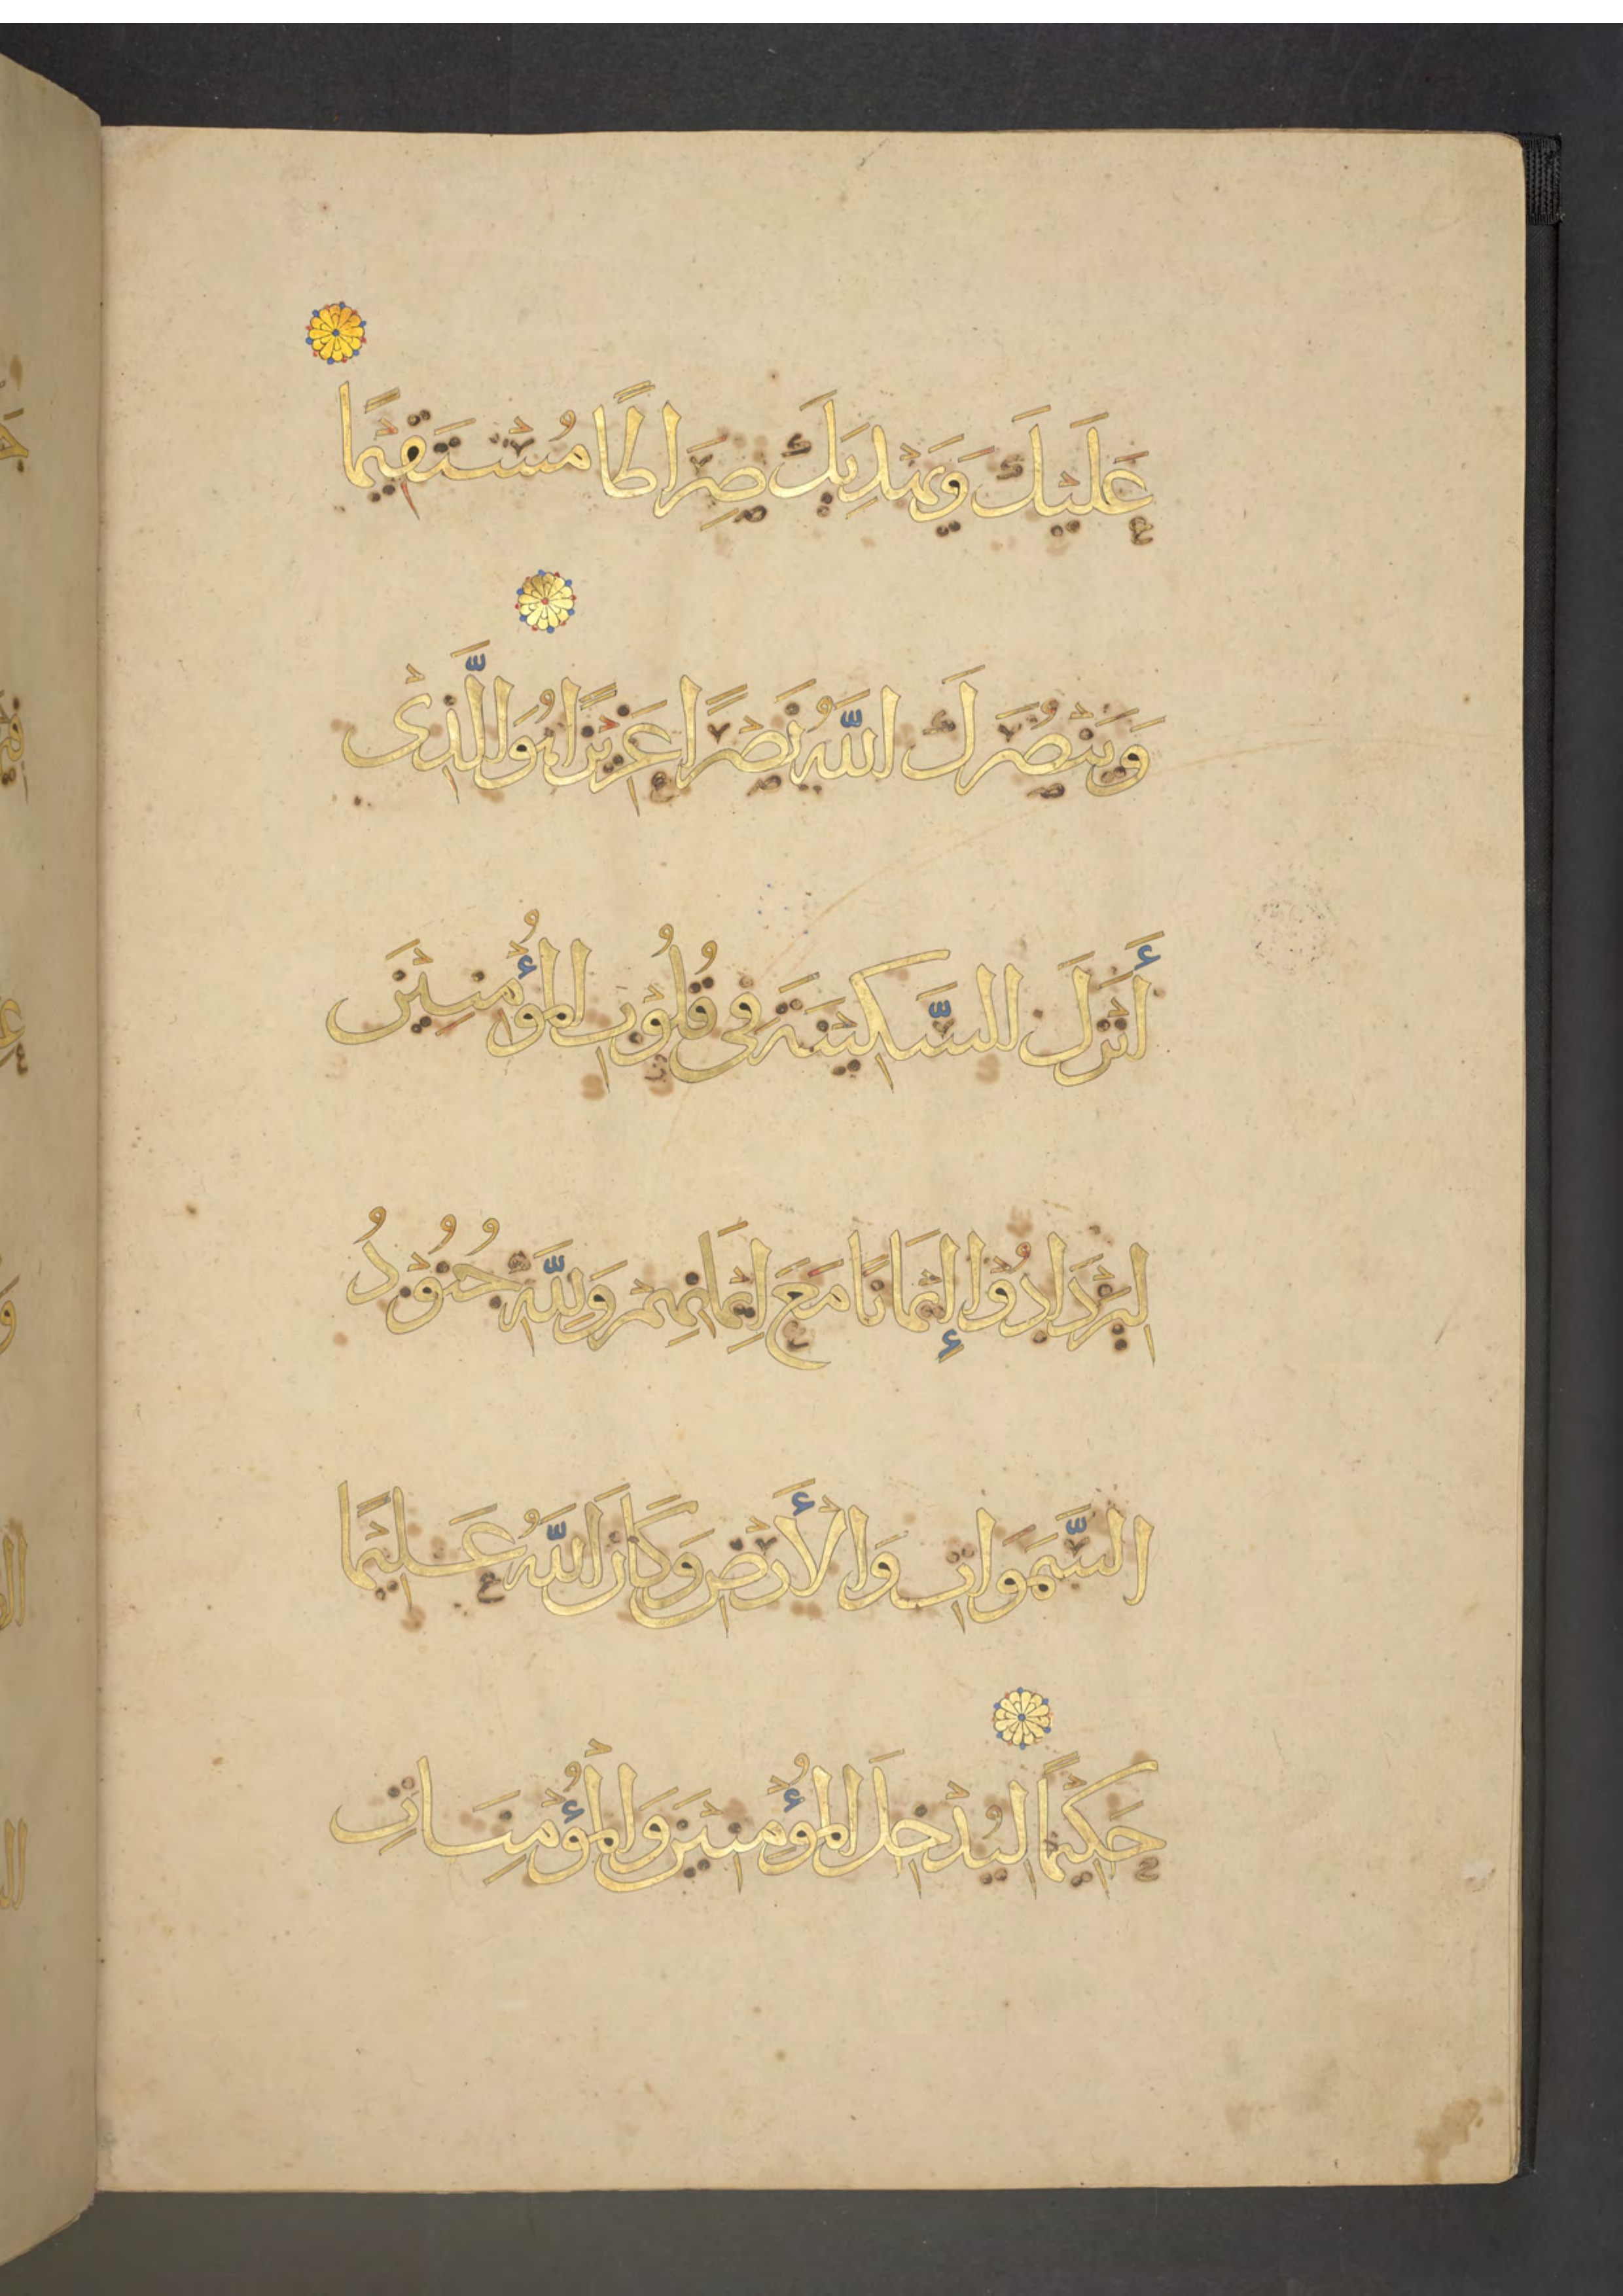 عَلَيْكَ وَيَهْدِيَكَ صِرَاطًا مُسْتَقِيْمًا
وَيَنْصُرَكَ اللَّهُ نَصْرًا عَزِيْزًا هُوَ الَّذِىْ
أَنْزَلَ السَّكِيْنَةَ فِى قُلُوْبِ الْمُؤْمِنِيْنَ
لِيَزْدَادُوْا إِيْمَانًا مَعَ اِيْمَانِهِمْ وَلِلَّهِ جُنُوْدُ
السَّمَوَاتِ وَالْأَرْضِ وَكَانَ اللَّهُ عَلِيْمًا
حَكِيْمًا لِيُدْخِلَ الْمُؤْمِنِيْنَ وَالْمُؤْمِنَاتِ